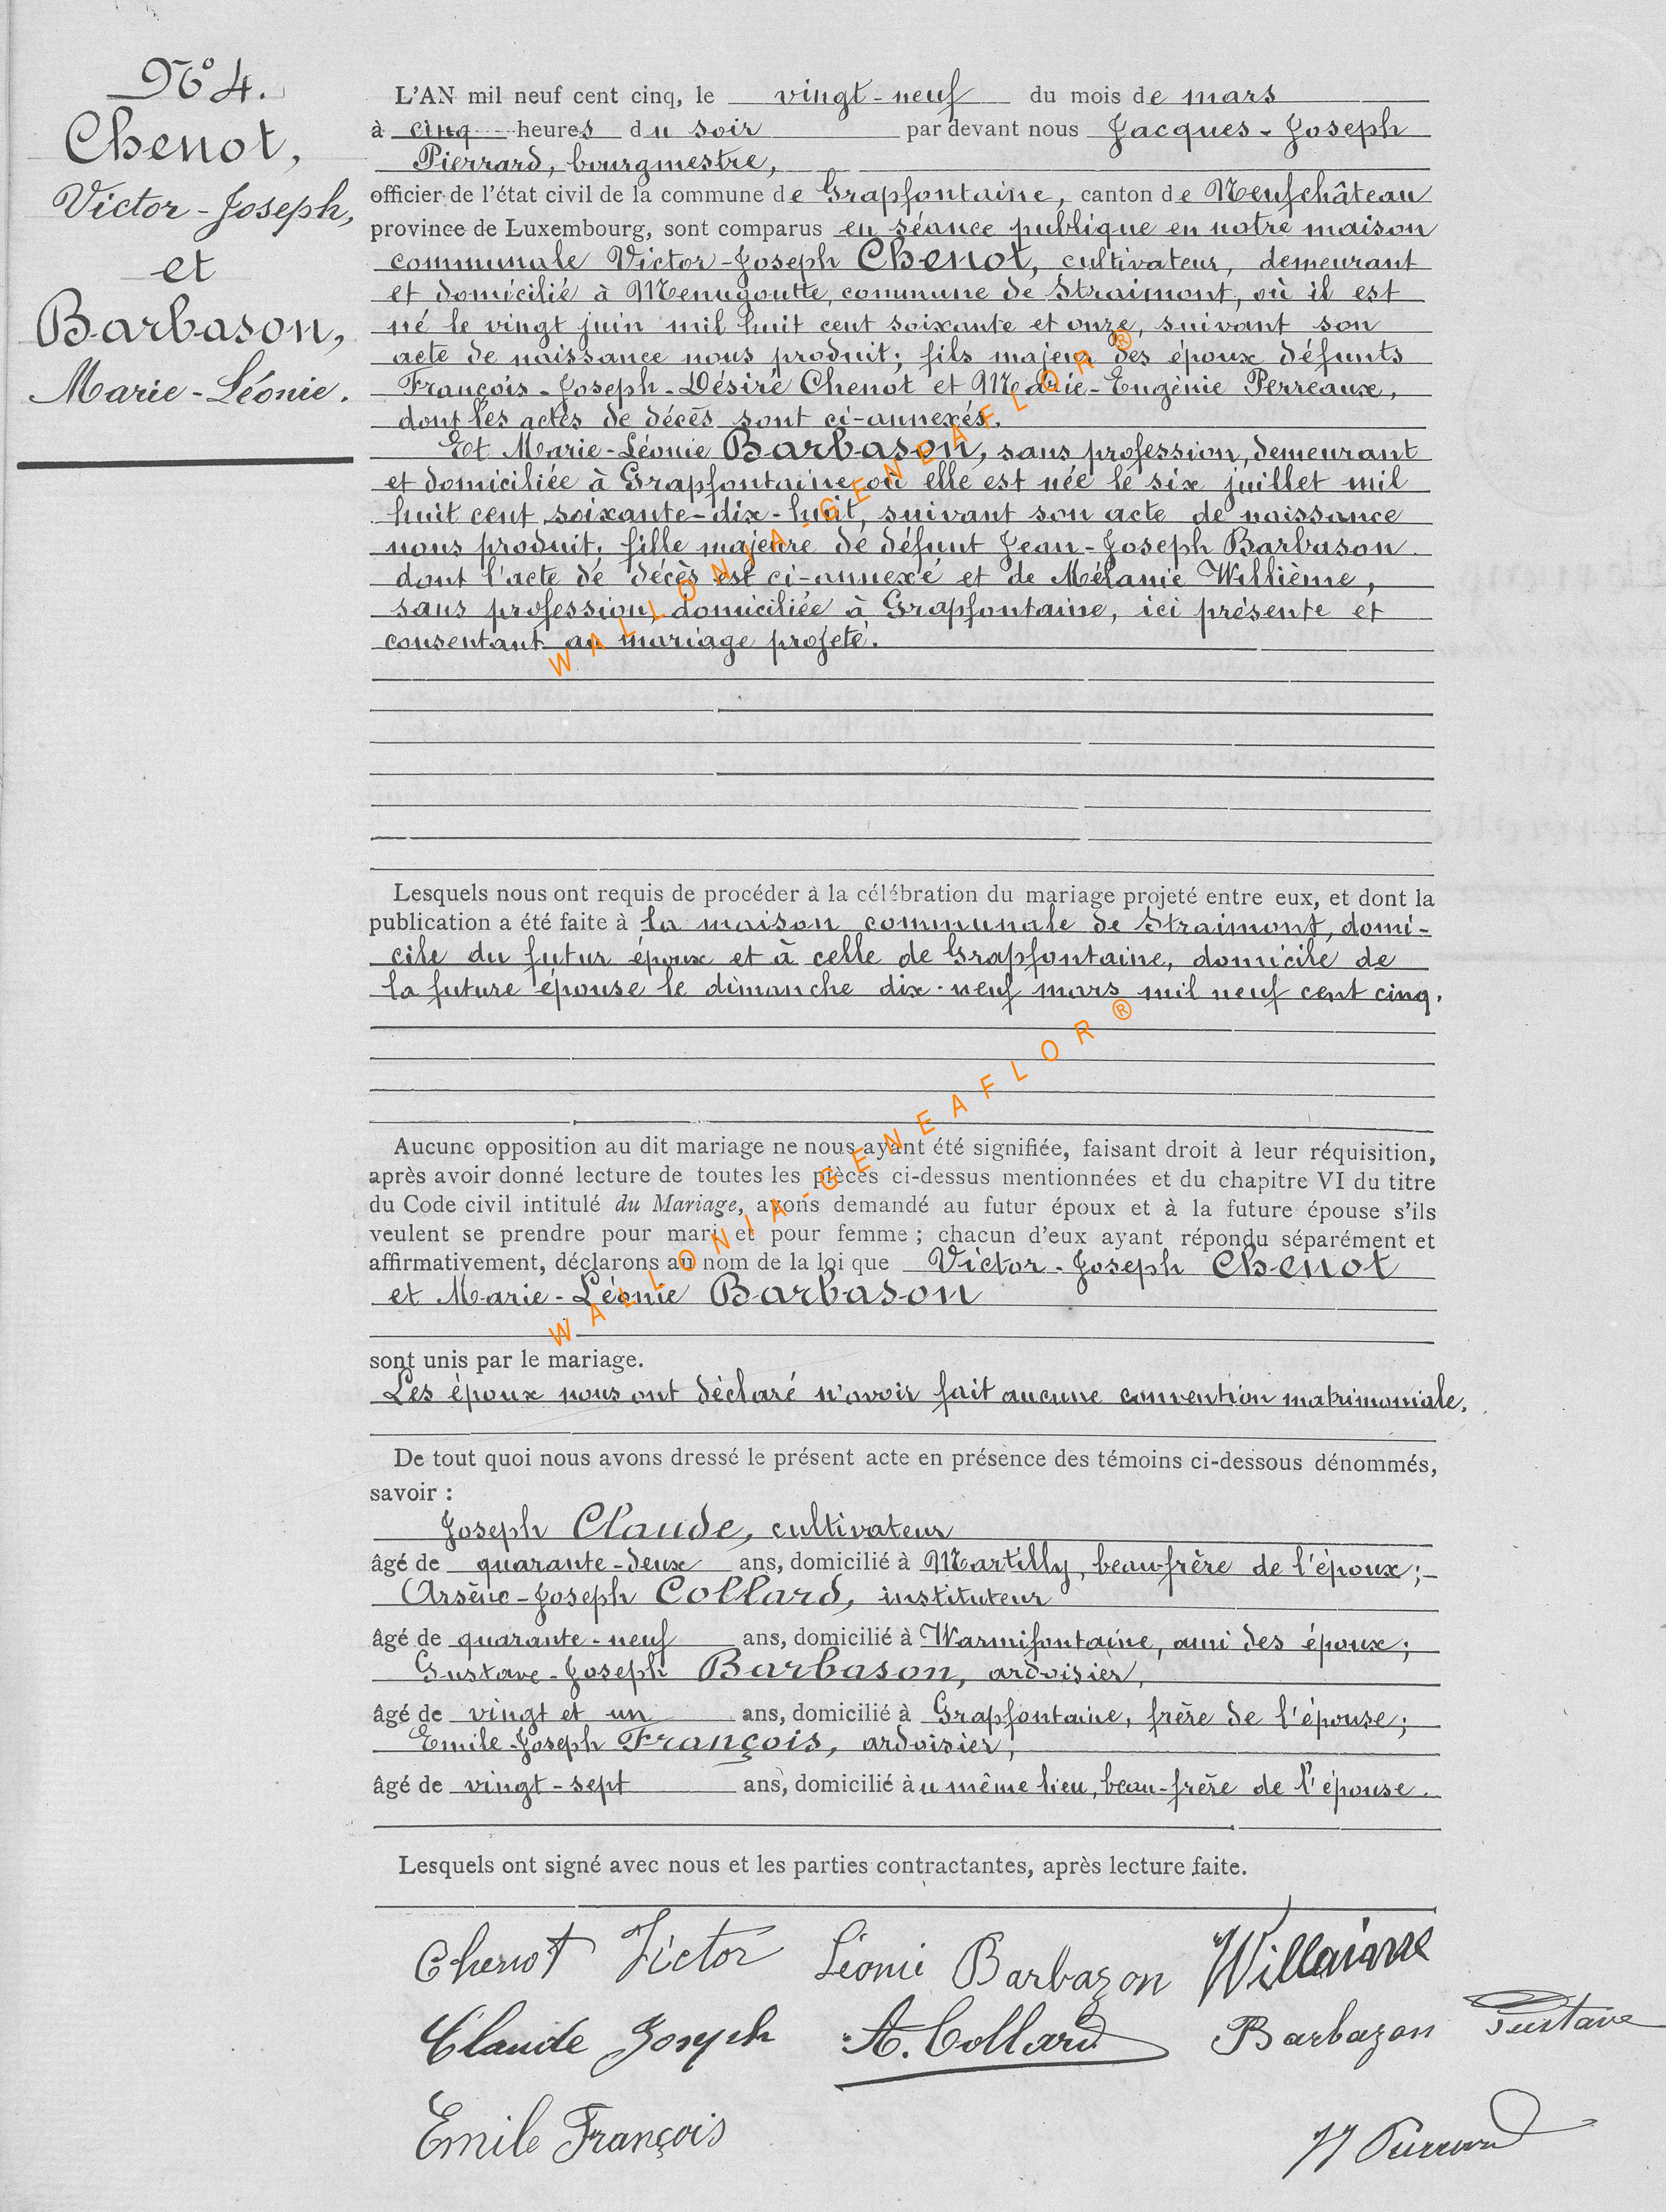 N° 4.
Chenot,
Victor-Joseph,
et
Barbason,
Marie-Léonie.
L'AN mil neuf cent cinq, le vingt-neuf du mois de mars
à cinq heures du soir par devant nous Jacques-Joseph
Pierrard, bourgmestre,
officier de l'état civil de la commune de Grapfontaine, canton de Neufchâteau
province de Luxembourg, sont comparus en séance publique en notre maison
communale Victor-Joseph Chenot, cultivateur, demeurant
et domicilié à Menugoutte, commune de Straimont, où il est
né le vingt juin mil huit cent soixante et onze, suivant son
acte de naissance nous produit; fils majeur des époux défunts
François-Joseph-Désiré Chenot et Marie-Eugénie Perreaux,
dont les actes de décès sont ci-annexés.
Et Marie-Léonie Barbason, sans profession, demeurant
et domiciliée à Grapfontaine où elle est née le six juillet mil
huit cent soixante-dix-huit, suivant son acte de naissance
nous produit, fille majeure de défunt Jean-Joseph Barbason
dont l'acte de décès est ci-annexé et de Mélanie Willième,
sans profession, domiciliée à Grapfontaine, ici présente et
consentant au mariage projeté.
Lesquels nous ont requis de procéder à la célébration du mariage projeté entre eux, et dont la
publication a été faite à la maison communale de Straimont, domi-
cile du futur époux et à celle de Grapfontaine, domicile de
la future épouse le dimanche dix-neuf mars mil neuf cent cinq.
Aucune opposition au dit mariage ne nous ayant été signifiée, faisant droit à leur réquisition,
après avoir donné lecture de toutes les pièces ci-dessus mentionnées et du chapitre VI du titre
du Code civil intitulé du Mariage, avons demandé au futur époux et à la future épouse s'ils
veulent se prendre pour mari et pour femme ; chacun d'eux ayant répondu séparément et
affirmativement, déclarons au nom de la loi que Victor-Joseph Chenot
et Marie-Léonie Barbason
sont unis par le mariage.
Les époux nous ont déclaré n'avoir fait aucune convention matrimoniale.
De tout quoi nous avons dressé le présent acte en présence des témoins ci-dessous dénommés,
savoir :
Joseph Claude, cultivateur
âgé de quarante-deux ans, domicilié à Martilly, beau-frère de l'époux;
Arsène-Joseph Collard, instituteur
âgé de quarante-neuf ans, domicilié à Warmifontaine, ami des époux;
Gustave-Joseph Barbason, ardoisier,
âgé de vingt et un ans, domicilié à Grapfontaine, frère de l'épouse;
Emile-Joseph François, ardoisier,
âgé de vingt-sept ans, domicilié au même lieu, beau-frère de l'épouse.
Lesquels ont signé avec nous et les parties contractantes, après lecture faite.
Chenot Victor Léonie Barbazon
Claude Joseph A. Collard Barbazon Gustave
Emile François
WALLONIA-GENEAFLOR®
WALLONIA-GENEAFLOR®